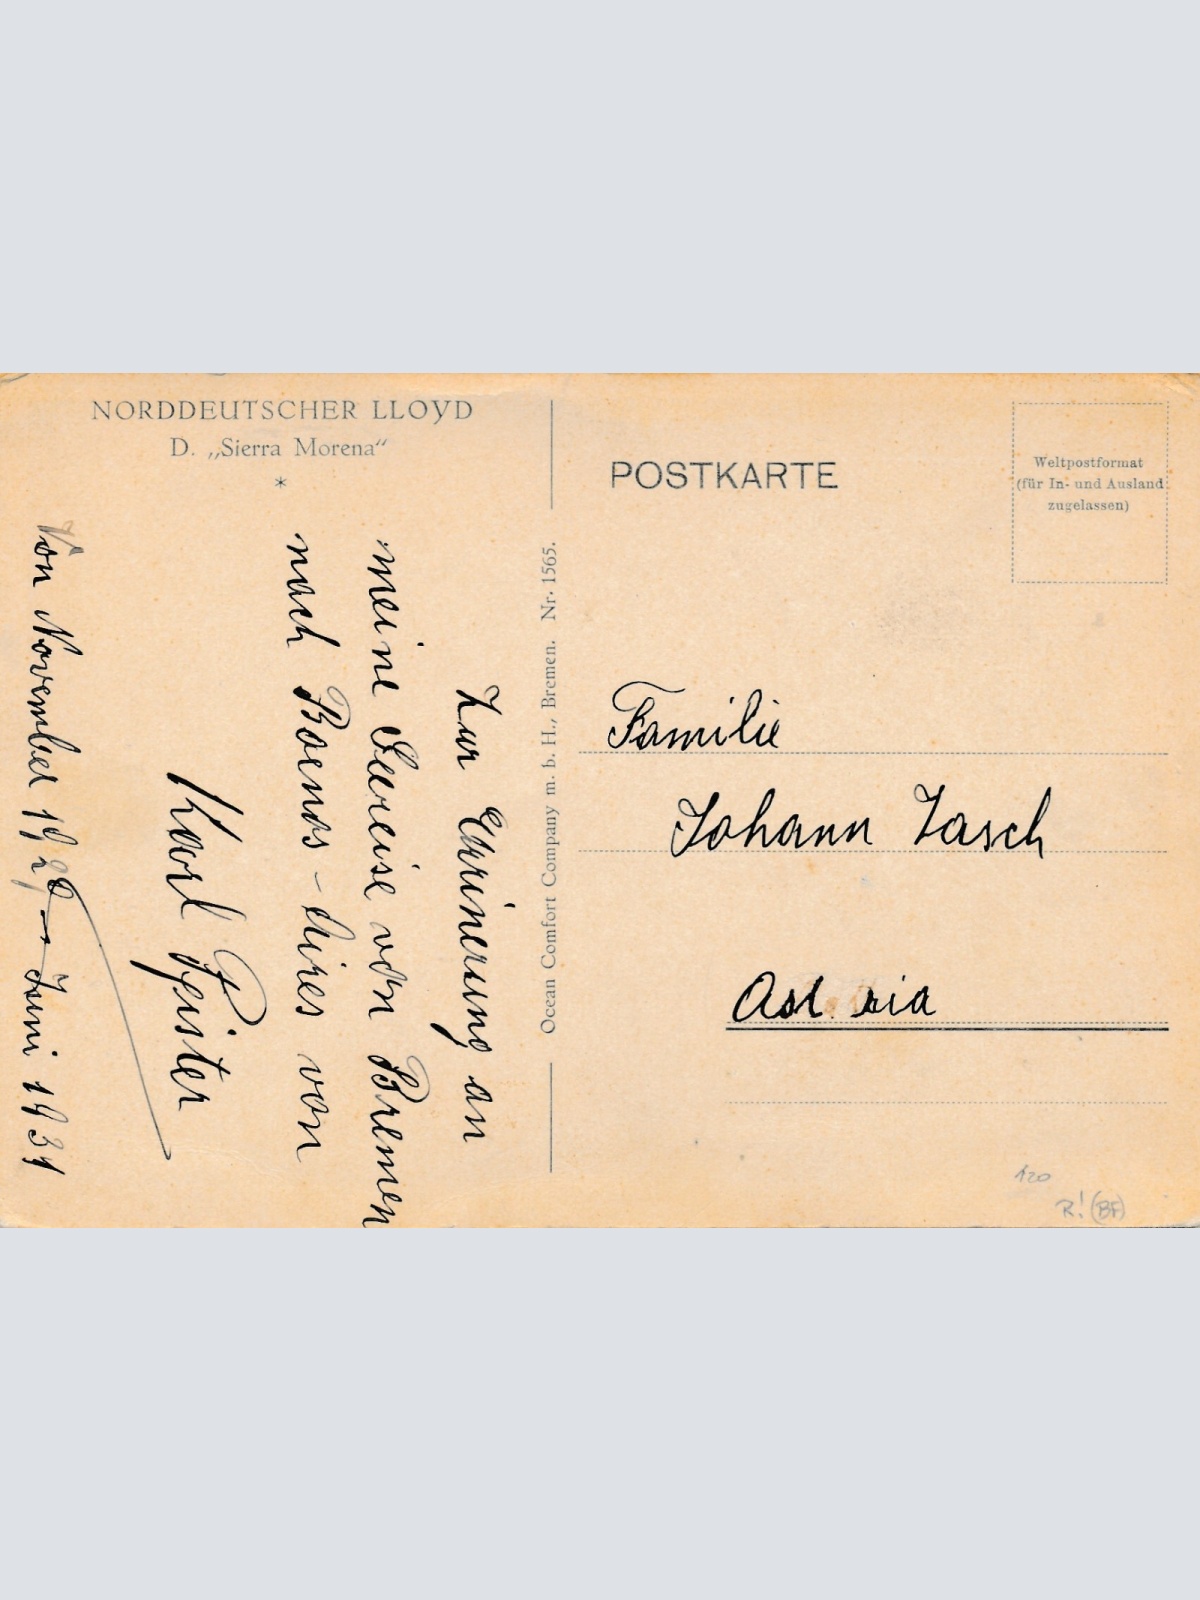 NORDDEUTSCHER LLOYD
D. „Sierra Morena“
*
Zur Errinerung an
meine Seereise von Bremen
nach Boenos-Aires von
Karl Pfister
Von November 1929 – Juni 1931
Ocean Comfort Company m. b. H., Bremen. Nr. 1565.
POSTKARTE
Weltpostformat
(für In- und Ausland
zugelassen)
Familie
Johann Jasch
120
R! (BF)